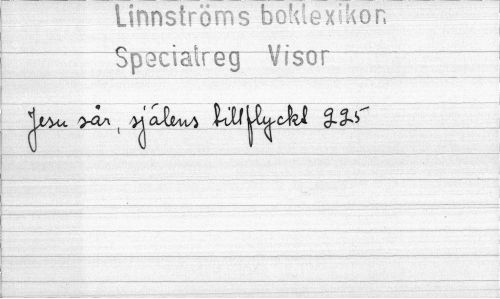 Linnströms boklexikon
Specialreg Visor
Jesu sår, själens tillflyckt 225